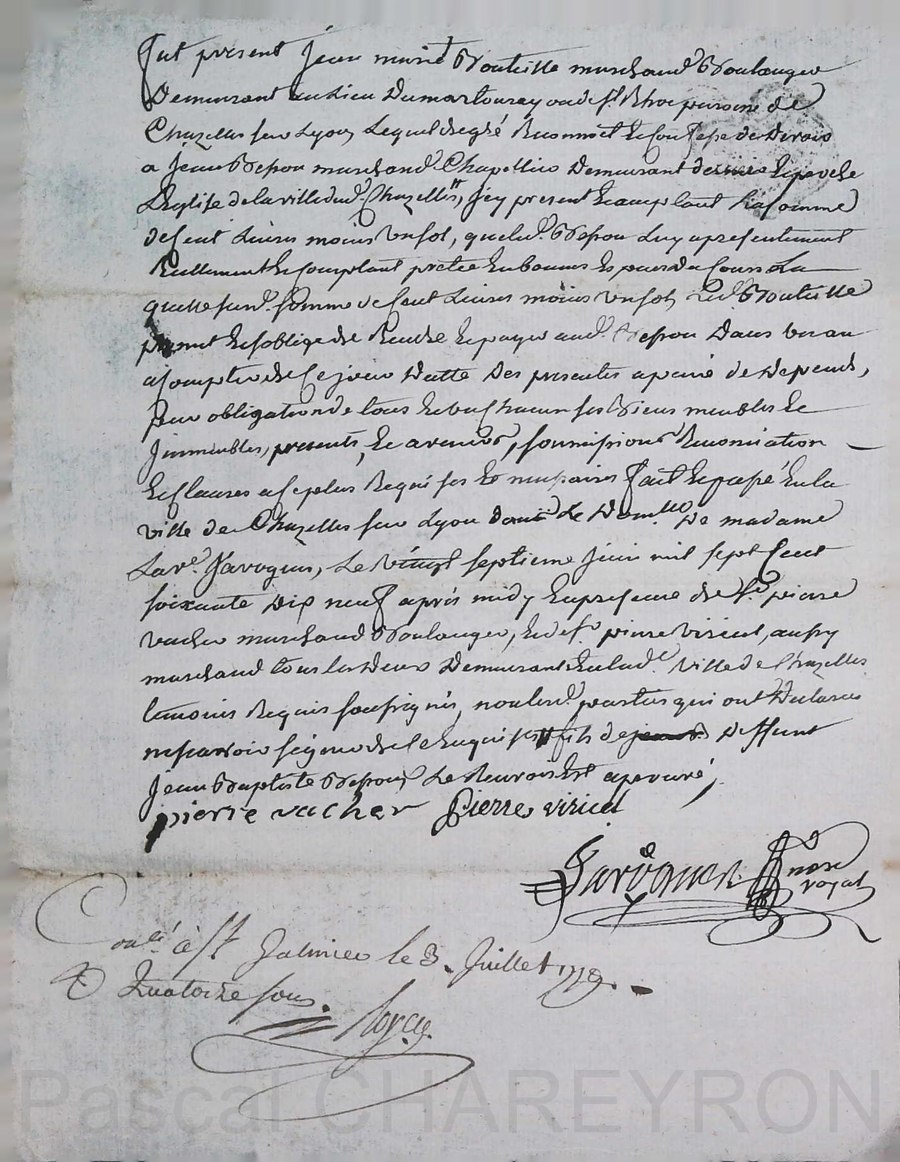 fut present jean marie Bouteille marchand Boulanger
Demeurant au Lieu Dumartourey ou de St Roc paroisse de
Chazelles sur Lyon, Lequel de gré Reconnoit Et Confesse Devoir
a jean Besson marchand Chapellier Demeurant derrier Le
L'Eglise de la ville dud. Chazelles, jcy present Et acceptant La somme
de Cent Livres moins un sol, que led. Besson Luy a presentement
Reellement Et Comptant, pretée En bonnes Especes du Cours La
quelle susd. somme de Cent Livres moins un sol, led. Bouteille
promet Et s'oblige de Rendre Et payer aud. Besson Dans un an
a Compter de Ce jour Datte Des presentes a peine de Depends,
par obligation de tous Et un Chacun ses Biens meubles Et
jmmeubles, presents, Et avenirs, soumissions Renonciation
Et Clauses a Ce plus Requises Et necessaires fait Et passé En la
ville de Chazelles sur Lyon dans Le Domlle De madame
La ve. Javogues, Le vingt septieme juin mil sept Cent
soixante Dix neuf après midy En presence de Sr. pierre
vacher marchand Boulanger, Et de Sr. pierre viricel, aussy
marchand tous les Deux Demeurants En lad. ville de Chazelles
temoins Requis soussignés, non lesd. parties qui ont Declaré
ne savoir signer de Ce Enquises fils de jean B. Deffunt
jean Baptiste Besson, Le Renvoi Est aprouvé,
pierre vacher pierre viricel
Javogues nore
royal
Conlé à St Galmier le 3. Juillet 1779.
R Quatorze sous.
Pascal CHAREYRON